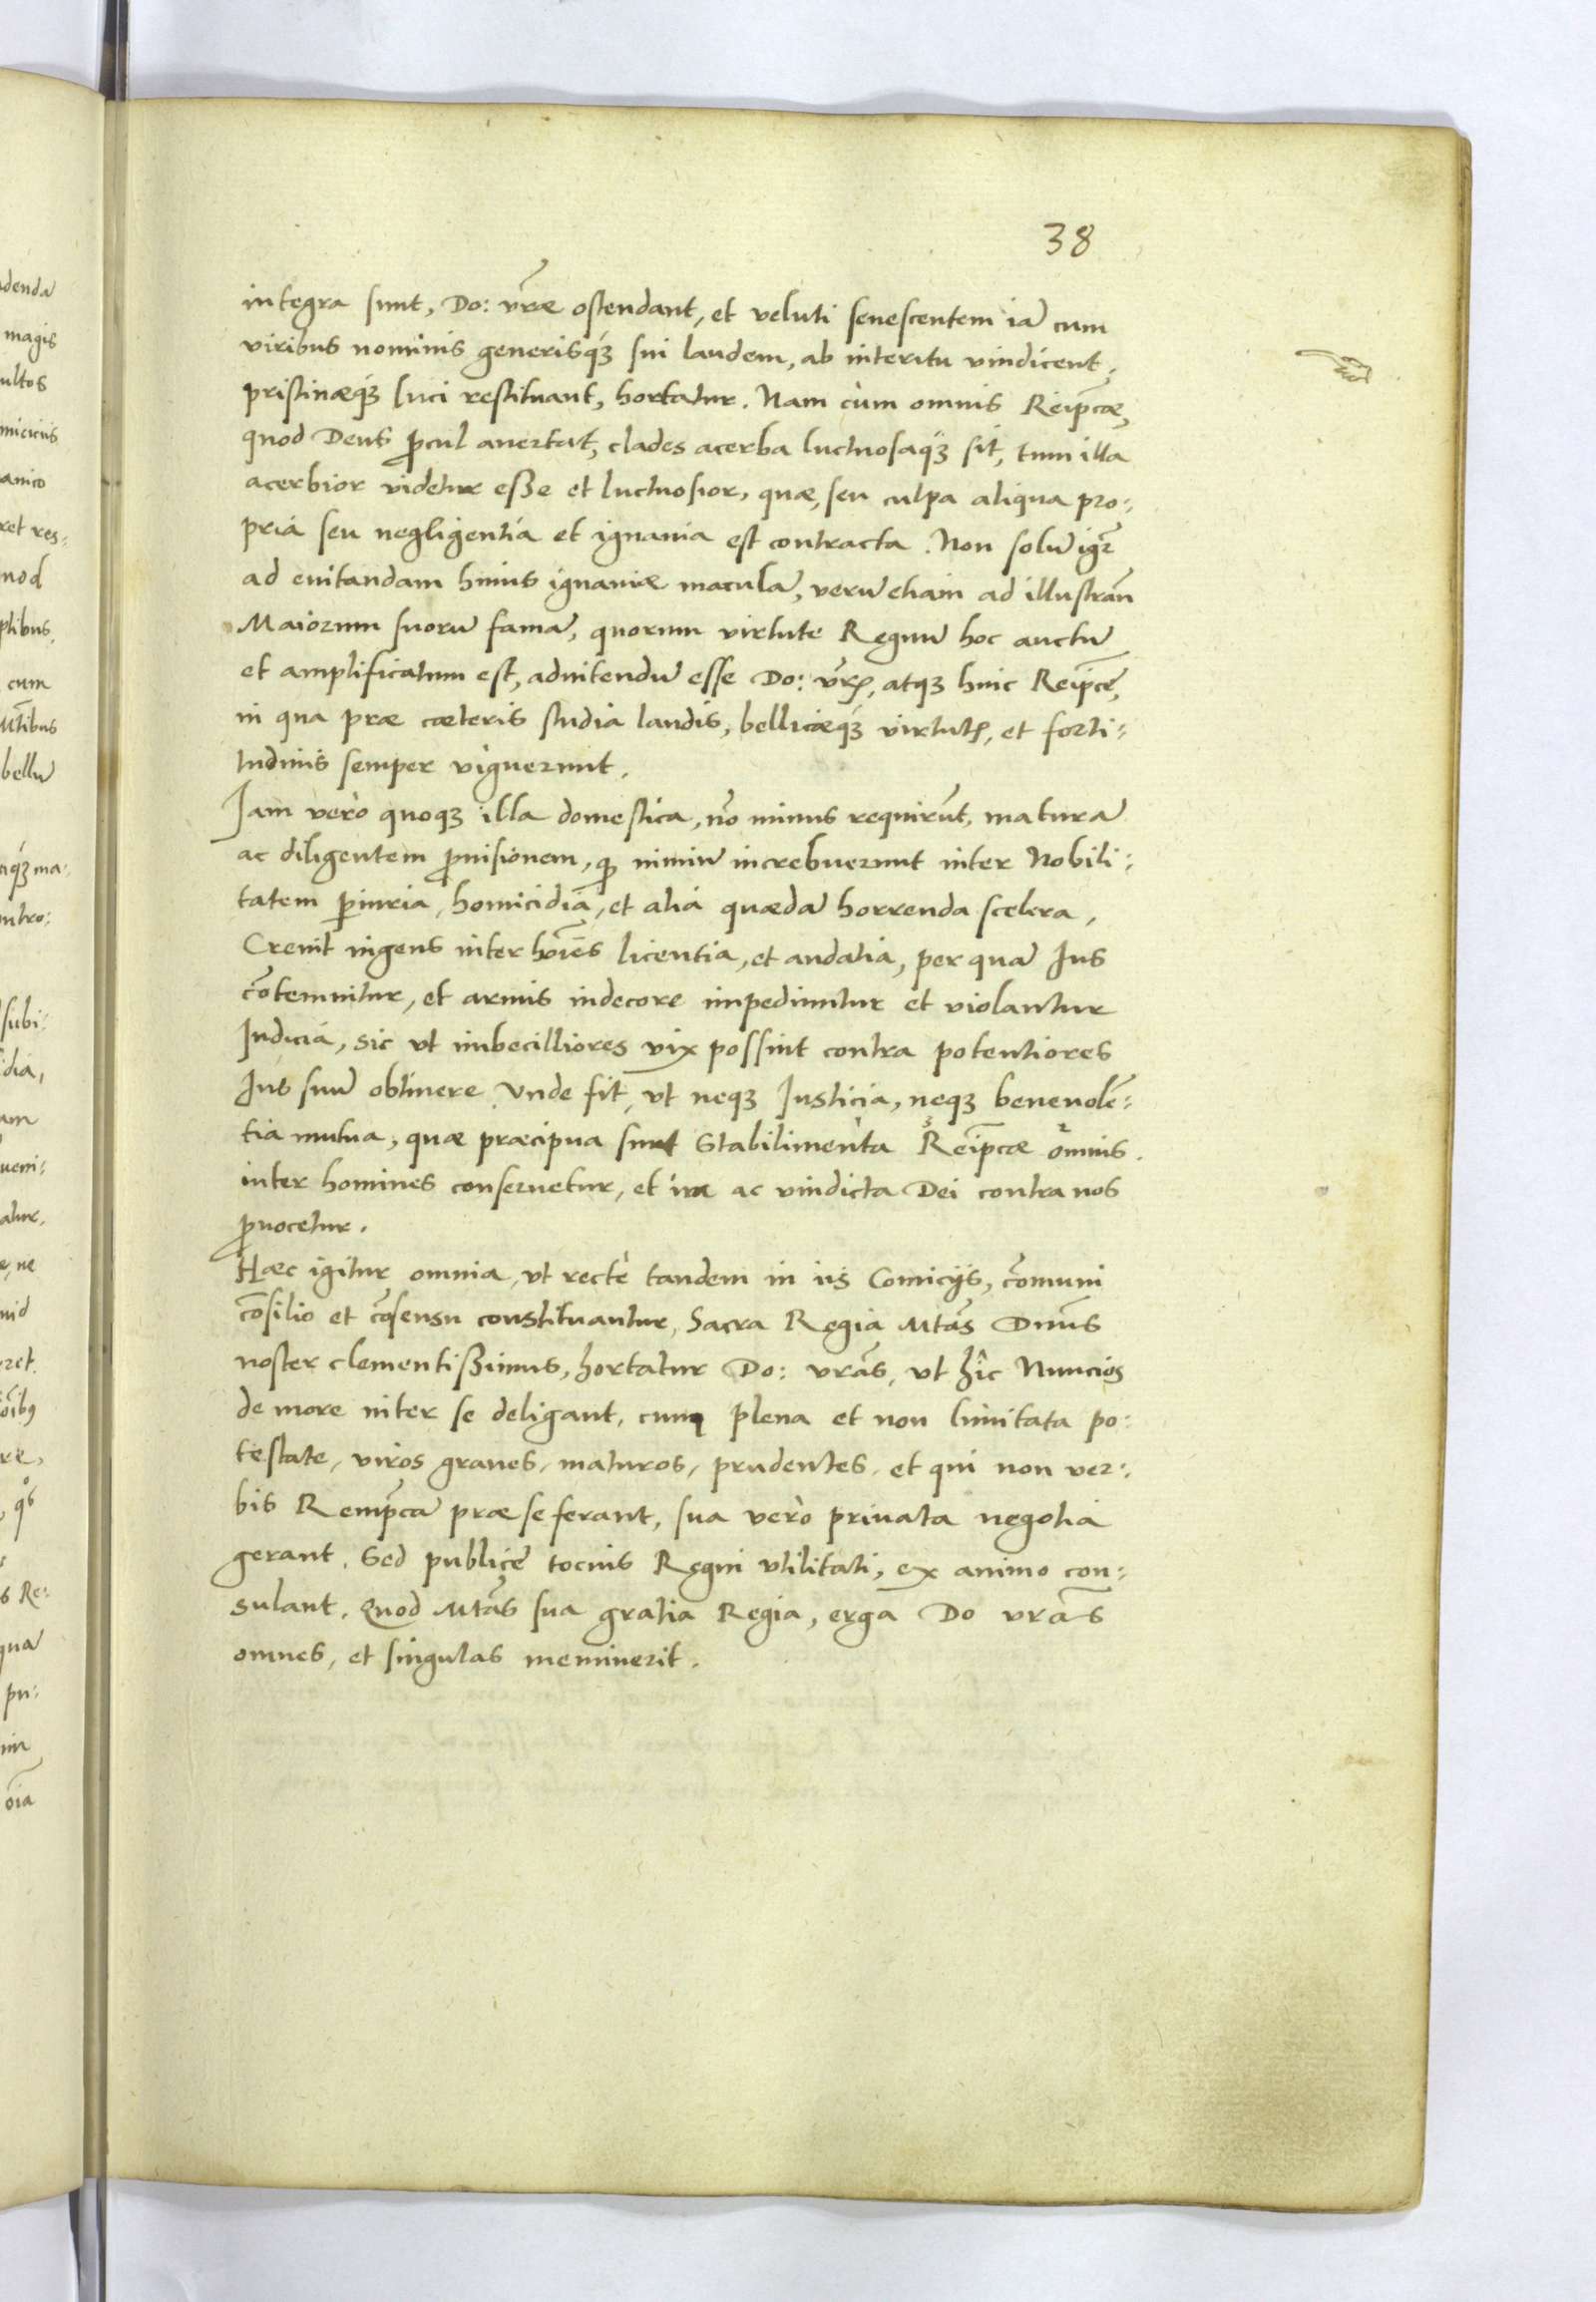 38
integra sunt, Do: vr̃æ ostendant, et veluti senescentem iã cum
viribus nominis generisq́ꝫ sui laudem, ab interitu vindicent,
pristinæq́ꝫ luci restituant, hortatur. Nam cùm omnis Reip̃cæ,
quod Deus ꝓcul auertat, clades acerba luctuosaq́ꝫ sit, tum illa
acerbior videtur eße et luctuosior, quæ, seu culpa aliqua pro:
pria seu negligentia et ignauia est contracta. Non solũ igr̃
ad euitandam huius ignauiæ maculã, verũ etiam ad illustrañ
Maiorum suorũ famã, quorum virtute Regnũ hoc auctũ
et amplificatum est, adnitendũ esse Do: vr̃ꝭ, atqꝫ huic Reip̃cę,
in qua præ cæteris studia laudis, bellicæq́ꝫ virtutꝭ, et forti:
tudinis semper viguerunt.
Iam verò quoqꝫ illa domestica, nõ minus requirũt, maturã
ac diligentem ꝓuisionem, qꝫ nimiũ increbuerunt inter Nobili:
tatem ꝑiuria, homicidia, et alia quædã horrenda scelera,
Creuit ingens inter hoĩes licentia, et audatia, per quã Ius
cõtemnitur, et armis indecore impediuntur et violantur
Iudicia, sic vt imbecilliores vix possint contra potentiores
Ius suũ obtinere. Vnde fit, vt neqꝫ Iusticia, neqꝫ beneuolẽ:
tia mutua, quæ præcipua sunt Stabilimenta Reip̃cæ omnis.
inter homines conseruetur, et ira ac vindicta Dei contra nos
ꝓuocetur.
Hæc igitur omnia, vt rectè tandem in iis Comicijs, cõmuni
cõsilio et cõsensu constituantur, Sacra Regia Mtãs Dñus
noster clementißimus, hortatur Do: vrãs, vt hîc Nuncios
de more inter se deligant, cum plena et non limitata po:
testate, viros graues, maturos, prudentes, et qui non ver:
bis Remp̃cã præ se ferant, sua verò priuata negotia
gerant. Sed publicę tocius Regni vtilitati, ex animo con:
sulant. Quod Mtãs sua gratia Regia, erga Do vrãs
omnes, et singulas meminerit.